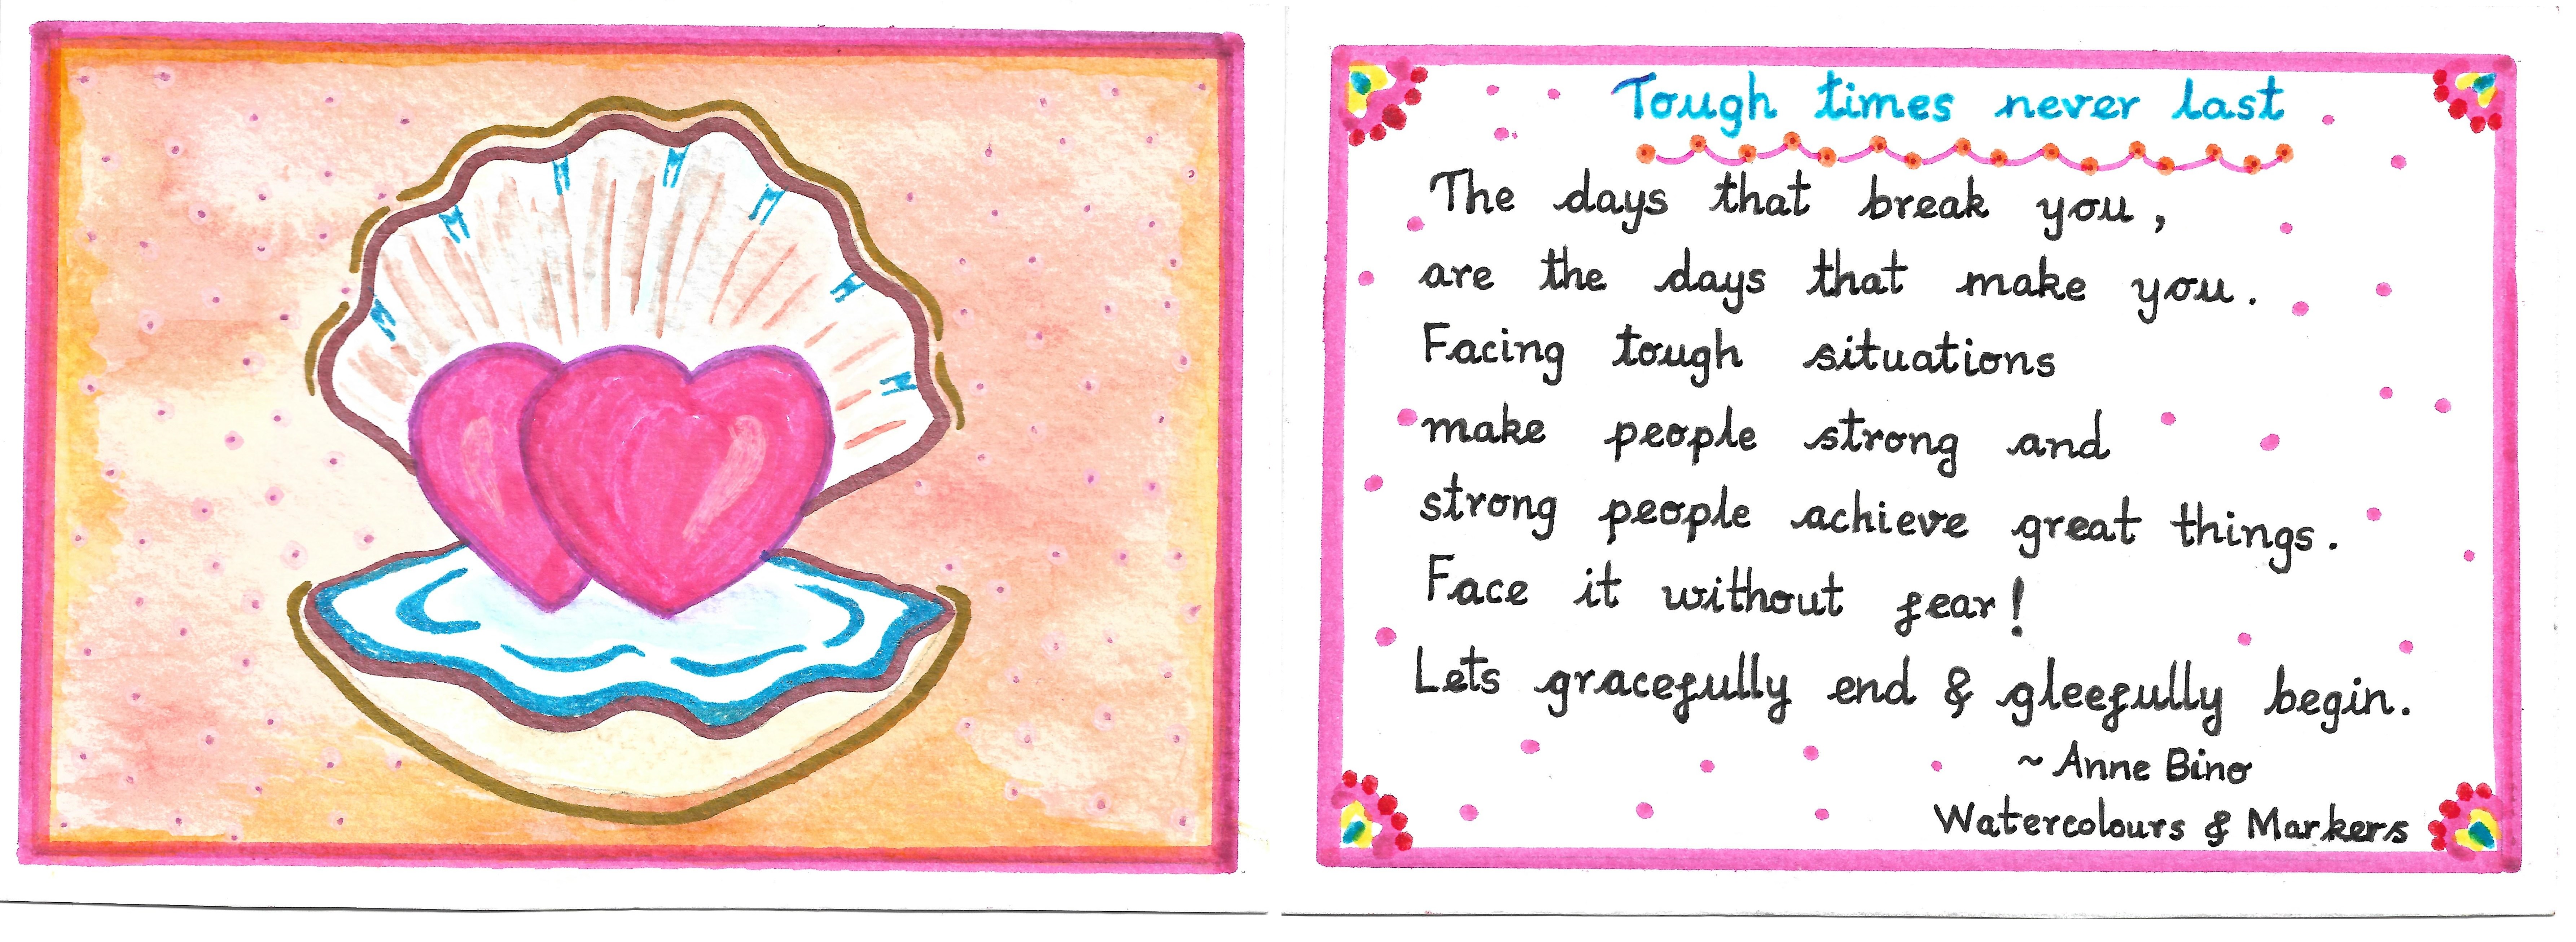 Tough times never last
The days that break you,
are the days that make you.
Facing tough situations
make people strong and
strong people achieve great things.
Face it without fear!
Lets gracefully end & gleefully begin.
~ Anne Bino
Watercolours & Markers